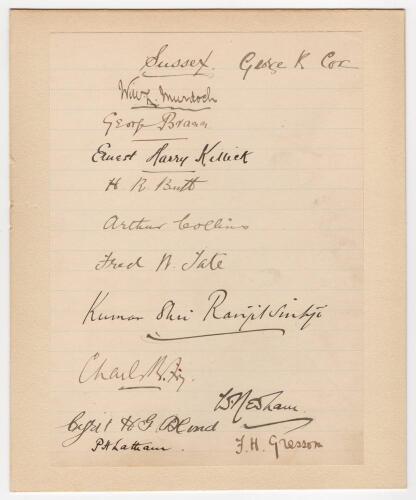 Sussex. George R Cox
Will L. Murdoch
George Brann
Ernest Harry Killick
H R Butt
Arthur Collins
Fred W. Tate
Kumar Shri Ranjitsinhji
Charles B. Fry
W. Newham
H G Blond
P H Latham.
F. H. Gresson